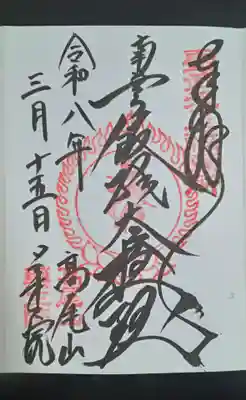 奉拝
南無飯縄大権現
高尾山
夕葉院
令和八年
三月十五日